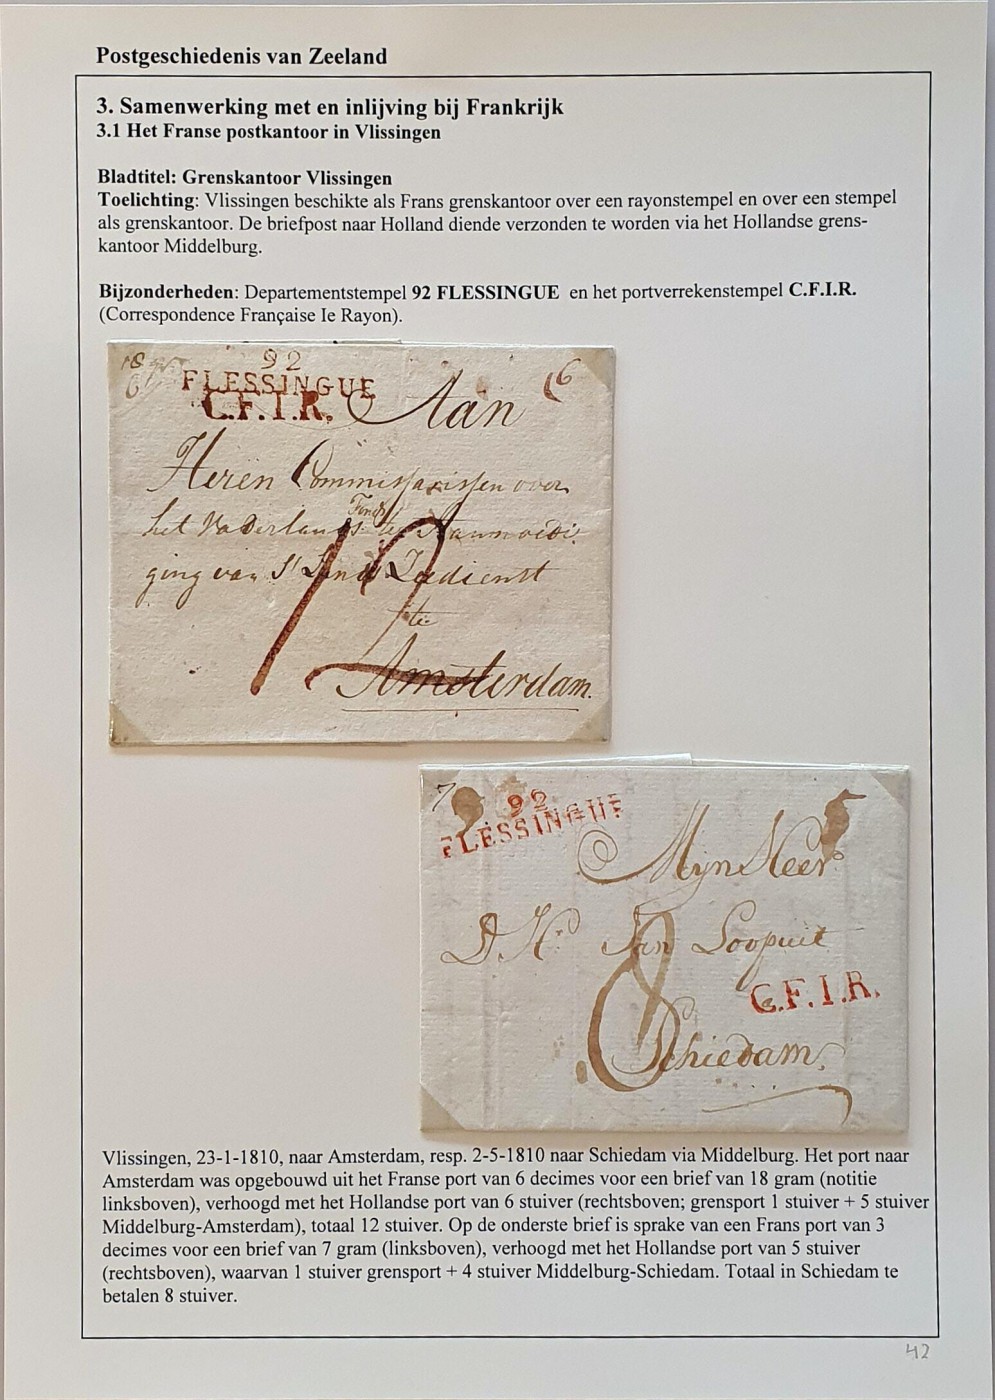 Postgeschiedenis van Zeeland
3. Samenwerking met en inlijving bij Frankrijk
3.1 Het Franse postkantoor in Vlissingen
Bladtitel: Grenskantoor Vlissingen
Toelichting: Vlissingen beschikte als Frans grenskantoor over een rayonstempel en over een stempel
als grenskantoor. De briefpost naar Holland diende verzonden te worden via het Hollandse grens-
kantoor Middelburg.
Bijzonderheden: Departementstempel 92 FLESSINGUE en het portverrekenstempel C.F.I.R.
(Correspondence Française Ie Rayon).
18
6
92
6
FLESSINGUE
C.F.I.R.
Aan
Heren Commissarissen over
het Vaderlands Fonds te Aanmoedi
ging van 'S Lands Zeedienst
te
12
Amsterdam.
7
92
FLESSINGUE
MijnHeer
D.H. Jan Loopuit
C.F.I.R.
8
Schiedam
Vlissingen, 23-1-1810, naar Amsterdam, resp. 2-5-1810 naar Schiedam via Middelburg. Het port naar
Amsterdam was opgebouwd uit het Franse port van 6 decimes voor een brief van 18 gram (notitie
linksboven), verhoogd met het Hollandse port van 6 stuiver (rechtsboven; grensport 1 stuiver + 5 stuiver
Middelburg-Amsterdam), totaal 12 stuiver. Op de onderste brief is sprake van een Frans port van 3
decimes voor een brief van 7 gram (linksboven), verhoogd met het Hollandse port van 5 stuiver
(rechtsboven), waarvan 1 stuiver grensport + 4 stuiver Middelburg-Schiedam. Totaal in Schiedam te
betalen 8 stuiver.
42